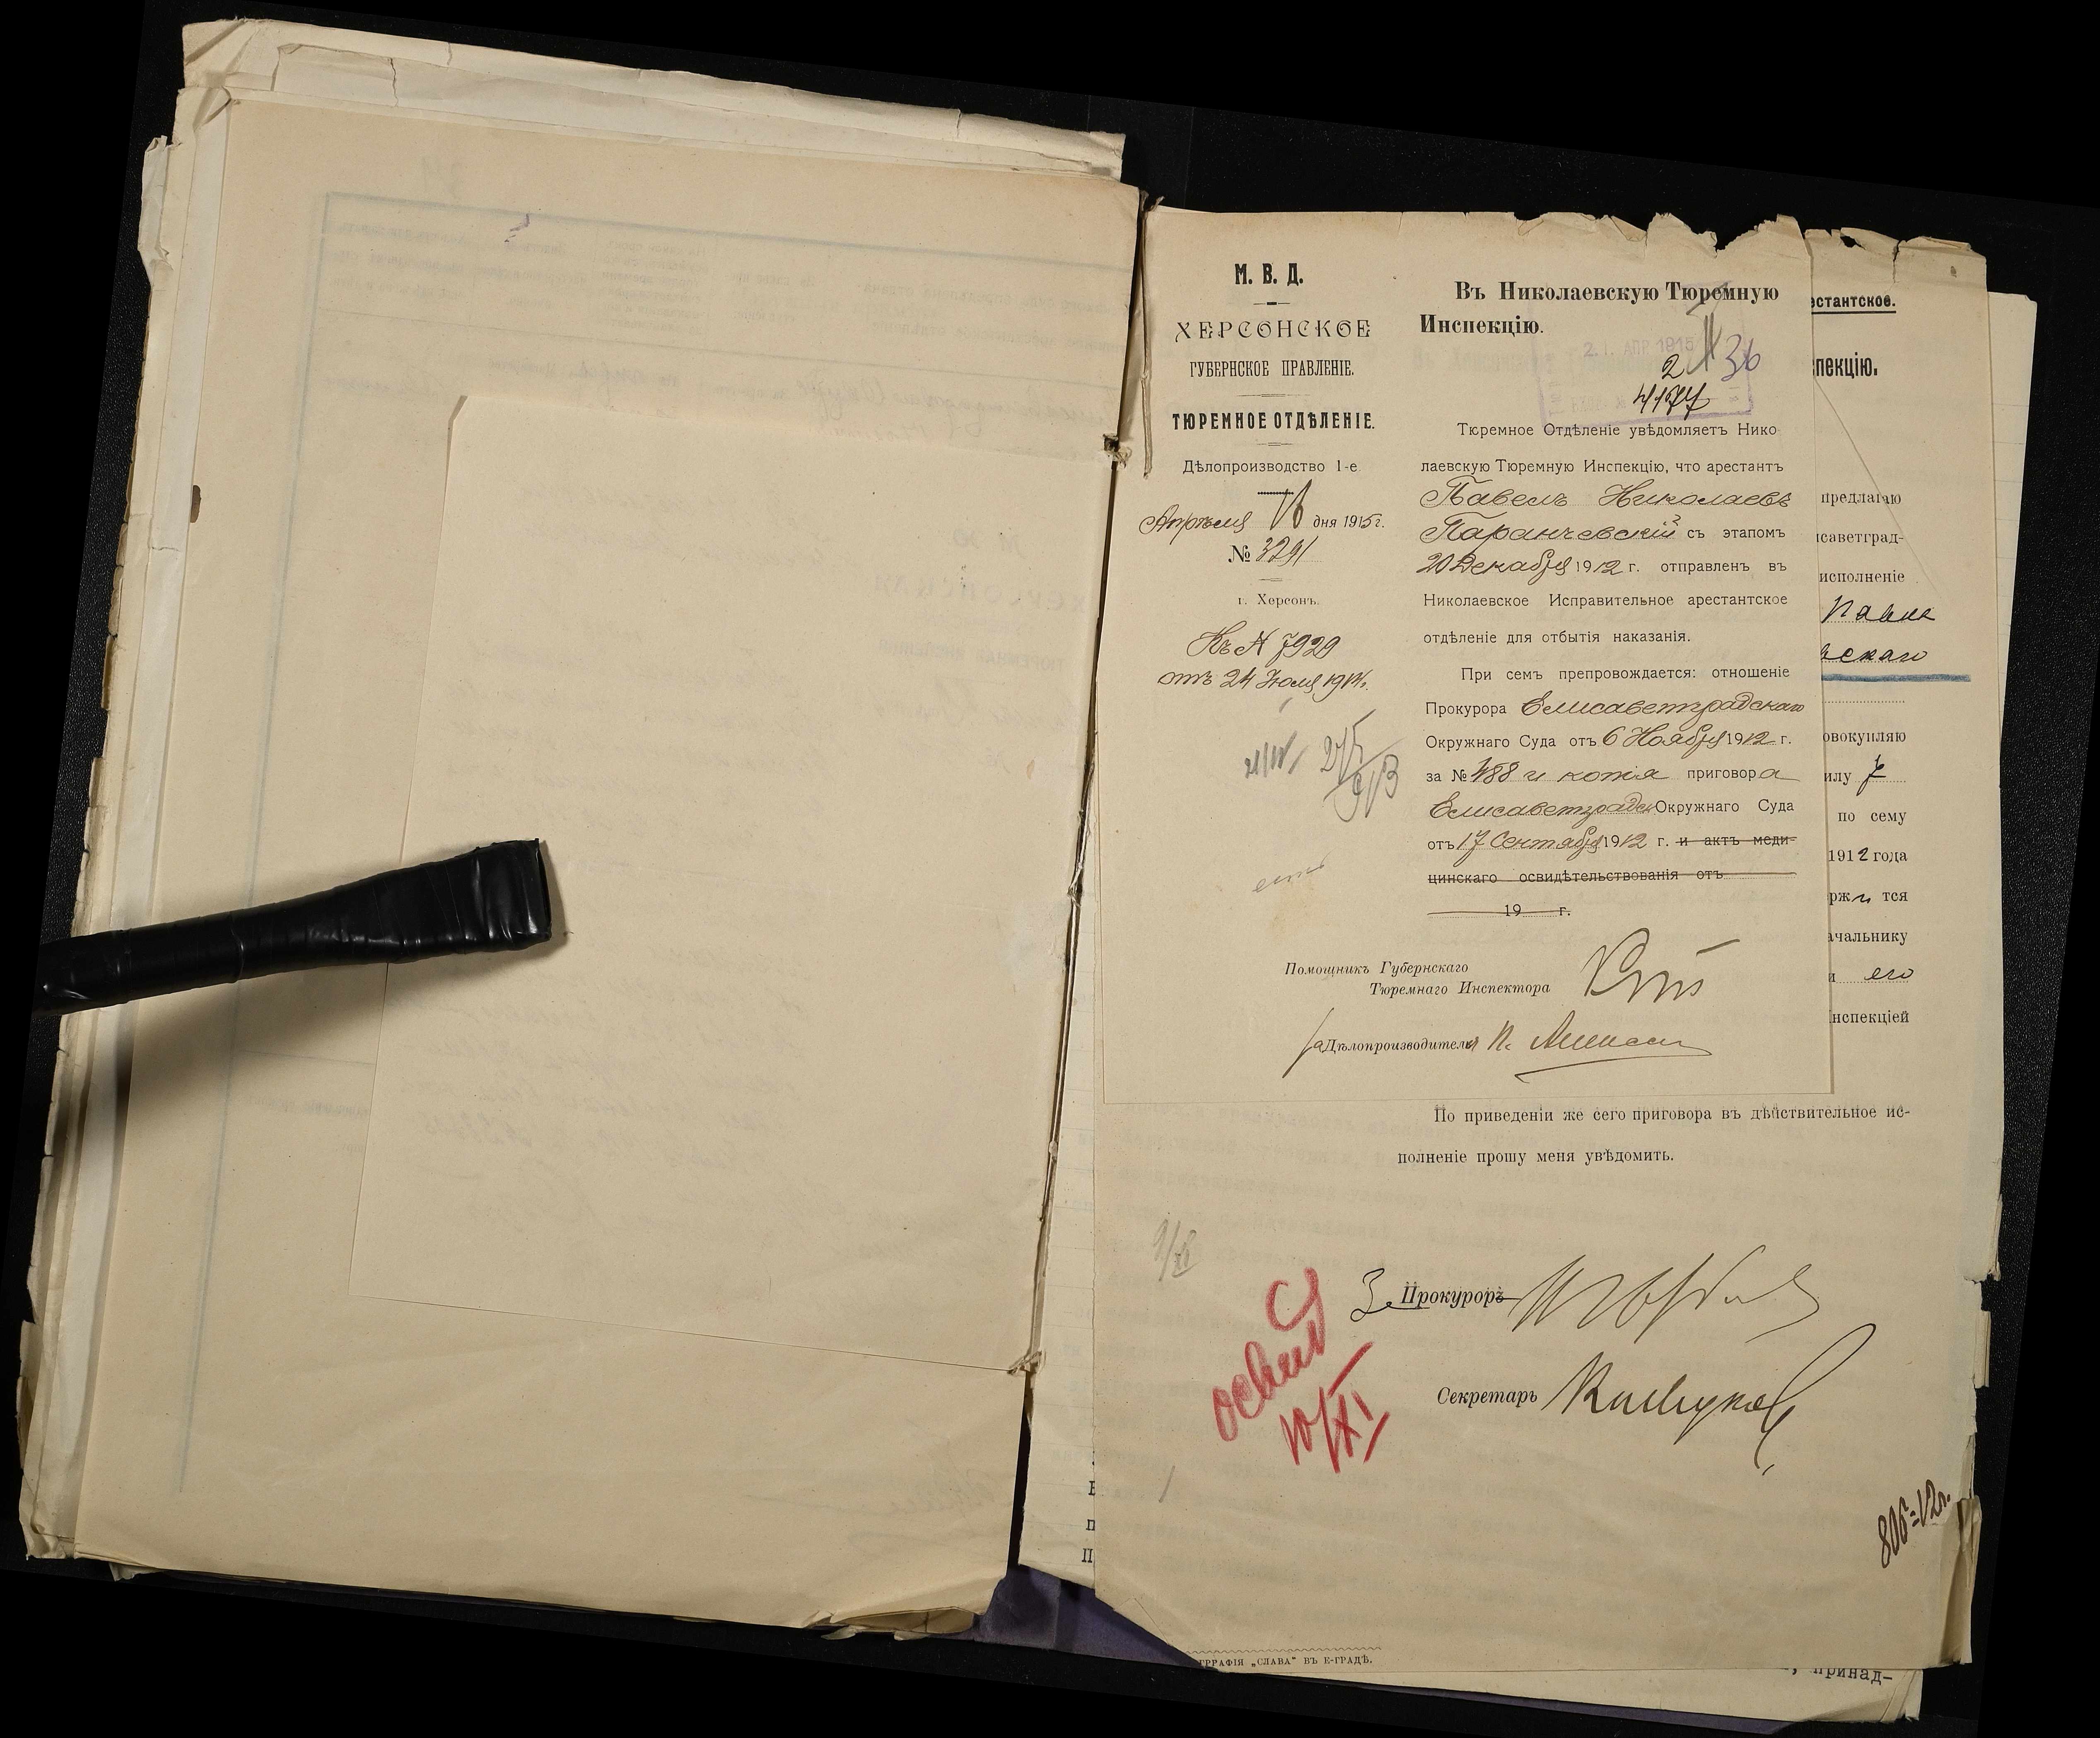 М. В. Д.
ХЕРСОНСКОЕ
ГУБЕРНСКОЕ ПРАВЛЕНІЕ.
ТЮРЕМНОЕ ОТДѢЛЕНІЕ.
Дѣлопроизводство 1-е
Апрѣля 18 дня 1915 г.
№ 3291
г. Херсонъ.
Къ № 7929
отъ 24 Іюля 1914 г.
Въ Николаевскую Тюремную
Инспекцію.
21 АПР 1915
36
2
4177
Тюремное Отдѣленіе увѣдомляетъ Нико
лаевскую Тюремную Инспекцію, что арестантъ
Павелъ Николаевъ
Паранчевскій съ этапомъ
20 Декабря 1912 г. отправленъ въ
Николаевское Исправительное арестантское
отдѣленіе для отбытія наказанія.
При семъ препровождается: отношеніе
Прокурора Елисаветградскаго
Окружнаго Суда отъ 6 Ноября 1912 г.
за № 488 и копія приговора
Елисаветградск Окружнаго Суда
отъ 17 Сентября 1912 г. и актъ меди-
цинскаго освидѣтельствованія отъ
19 г.
Помощникъ Губернскаго
Тюремнаго Инспектора
За Дѣлопроизводителя П.
естантское.
пекцію.
предлагаю
исаветград-
исполненіе
Павла
вскаго
овокупляю
илу 7
по сему
1912 года
ржится
ачальнику
и его
Інспекціей
По приведеніи же сего приговора въ дѣйствительное ис-
полненіе прошу меня увѣдомить.
З. Прокуроръ
Секретарь
10/XI
806-12 г.
ГРАФІЯ „СЛАВА“ ВЪ Е-ГРАДѢ.
принад-